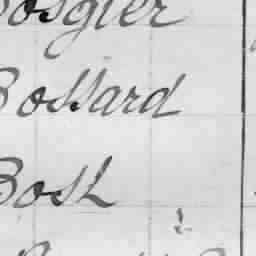 Bosgier
Bossard
Bosh